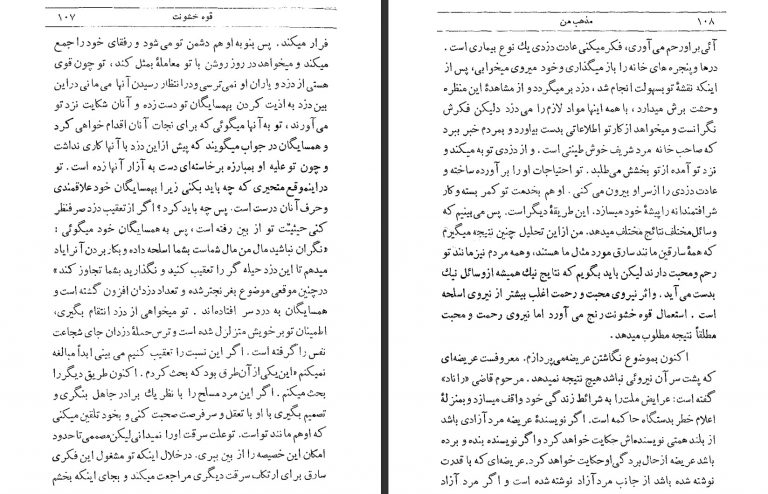 ۱۰۷ قوه خشونت
فرار میکند. پس بنوبه او هم دشمن تو می شود و رفقای خود را جمع
میکند و میخواهد در روز روشن با تو معاملهٔ بمثل کند، تو چون قوی
هستی از دزد و یاران او نمی‌ترسی و در انتظار رسیدن آنها می مانی در این
بین دزد به اذیت کردن بهمسایگان تو دست زده و آنان شکایت نزد تو
می آورند، تو به آنها میگوئی که برای نجات آنان اقدام خواهی کرد
و همسایگان در جواب میگویند که پیش از این دزد با آنها کاری نداشت
و چون تو علیه او بمبارزه برخاسته‌ای دست به آزار آنها زده است. تو
در اینموقع متحیری که چه باید بکنی زیرا بهمسایگان خود علاقمندی
و حرف آنان درست است. پس چه باید کرد؟ اگر از تعقیب دزد صرفنظر
کنی حیثیت تو از بین رفته است، پس به همسایگان خود میگوئی:
«نگران نباشید مال من مال شماست بشما اسلحه داده و بکار بردن آنرا یاد
میدهم تا این دزد حیله گر را تعقیب کنید و نگذارید بشما تجاوز کند»
در چنین موقعی موضوع بغرنجتر شده و تعداد دزدان افزون گشته است و
همسایگان به دردسر افتاده‌اند. تو میخواهی از دزد انتقام بگیری،
اطمینان تو بر خویش متزلزل شده است و ترس حملهٔ دزدان جای شجاعت
نفس را گرفته است. اگر این نسبت را تعقیب کنیم می بینی ابداً مبالغه
نمیکنم «این یکی از آن طرق بود که بحث کردم. اکنون طریق دیگر را
بحث میکنم. اگر این مرد مسلح را با نظر یك برادر جاهل بنگری و
تصمیم بگیری با او با تعقل و سر فرصت صحبت کنی و بخود تلقین میکنی
که او هم مانند تو است. تو علت سرقت او را نمیدانی لیکن مصممی تا حدود
امکان این خصیصه را از بین ببری. در خلال اینکه تو مشغول این فکری
سارق برای ارتکاب سرقت دیگری مراجعت میکند و بجای اینکه بخشم
مذهب من ۱۰۸
آئی بر او رحم می آوری، فکر میکنی عادت دزدی یك نوع بیماری است.
درها و پنجره های خانه را باز میگذاری و خود میروی میخوابی، پس از
اینکه نقشهٔ تو بسهولت انجام شد، دزد بر میگردد و از مشاهدهٔ این منظره
وحشت برش میدارد، با همه اینها مواد لازم را می دزد و لیکن فکرش
نگرانست و میخواهد از کار تو اطلاعاتی بدست بیاورد و بمردم خبر ببرد
که صاحب خانه مرد شریف خوش طینتی است. و از دزدی توبه میکند و
نزد تو آمده از تو بخشش می طلبد. تو احتیاجات او را بر آورده ساخته و
عادت دزدی را از سر او بیرون می کنی. او هم بخدمت تو کمر بسته و کار
شرافتمندانه را پیشهٔ خود میسازد. این طریقهٔ دیگر است. پس می بینیم که
وسائل مختلف نتائج مختلف میدهد. من از این تحلیل چنین نتیجه میگیرم
که همهٔ سارقین مانند سارق مورد مثال ما هستند، و همه مردم نیز مانند تو
رحم و محبت دارند لیکن باید بگویم که نتایج نیك همیشه از وسائل نیك
بدست می آید. و اثر نیروی محبت و رحمت اغلب بیشتر از نیروی اسلحه
است. استعمال قوه خشونت رنج می آورد اما نیروی رحمت و محبت
مطلقاً نتیجه مطلوب میدهد.
اکنون بموضوع نگاشتن عریضه می پردازم. معروفست عریضه‌ای
که پشت سر آن نیروئی نباشد هیچ نتیجه نمیدهد. مرحوم قاضی «راناد»
گفته است: عرایض ملت را به شرائط زندگی خود واقف میسازد و بمنزلهٔ
اعلام خطر بدستگاه حاکمه است. اگر نویسندهٔ عریضه مرد آزادی باشد
از بلند همتی نویسنده‌اش حکایت خواهد کرد و اگر نویسنده بنده و برده
باشد عریضه از حال بردگی او حکایت خواهد کرد. عریضه‌ای که با قدرت
نوشته شده باشد از جانب مرد آزاد نوشته شده است و اگر مرد آزاد